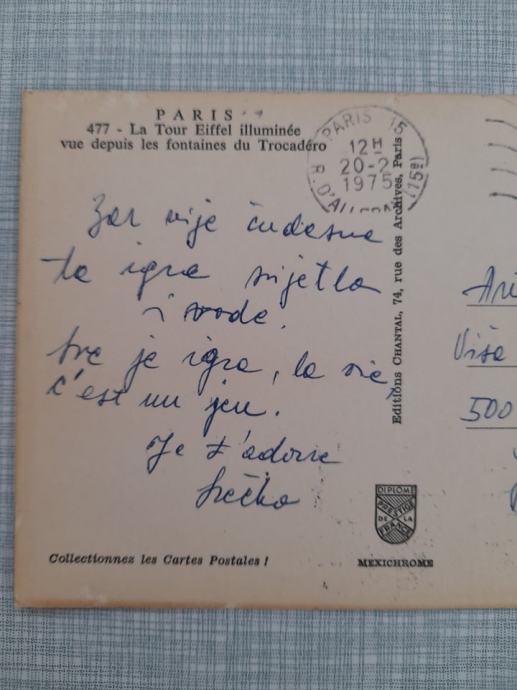 PARIS
477 - La Tour Eiffel illuminée
vue depuis les fontaines du Trocadéro
PARIS 15
12H
20-2
1975
R. D'AL
(15e)
Zar nije čudesna
ta igra svjetla
i vode.
Sve je igra, la vie,
c'est un jeu.
Je t'adore
Srećko
Editions CHANTAL, 74, rue des Archives, Paris
Visa
500
DIPLOME
PRESTIGE
DE LA
FRANCE
MEXICHROME
Collectionnez les Cartes Postales !